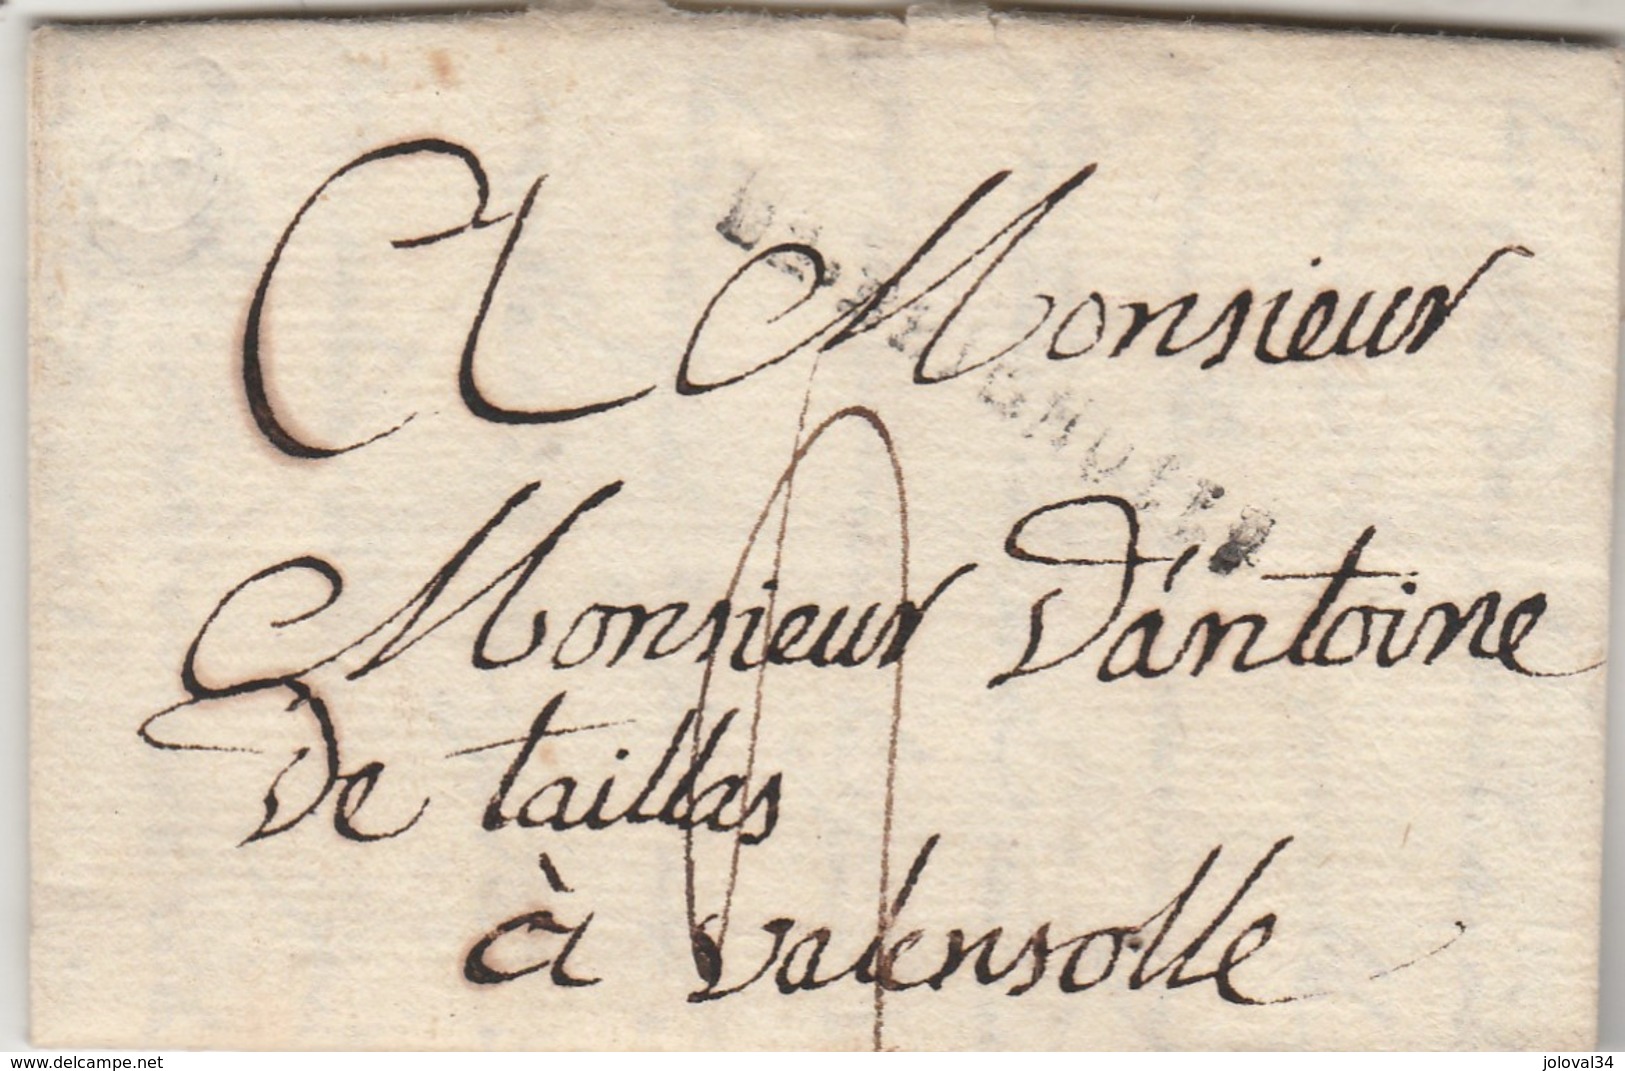 A Monsieur
Monsieur D'antoine
De taillas
à valensolle
www.delcampe.net
joloval34